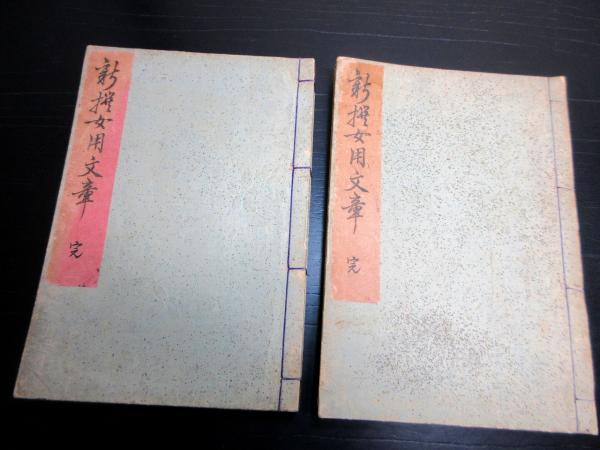 新撰女用文章 完
新撰女用文章 完